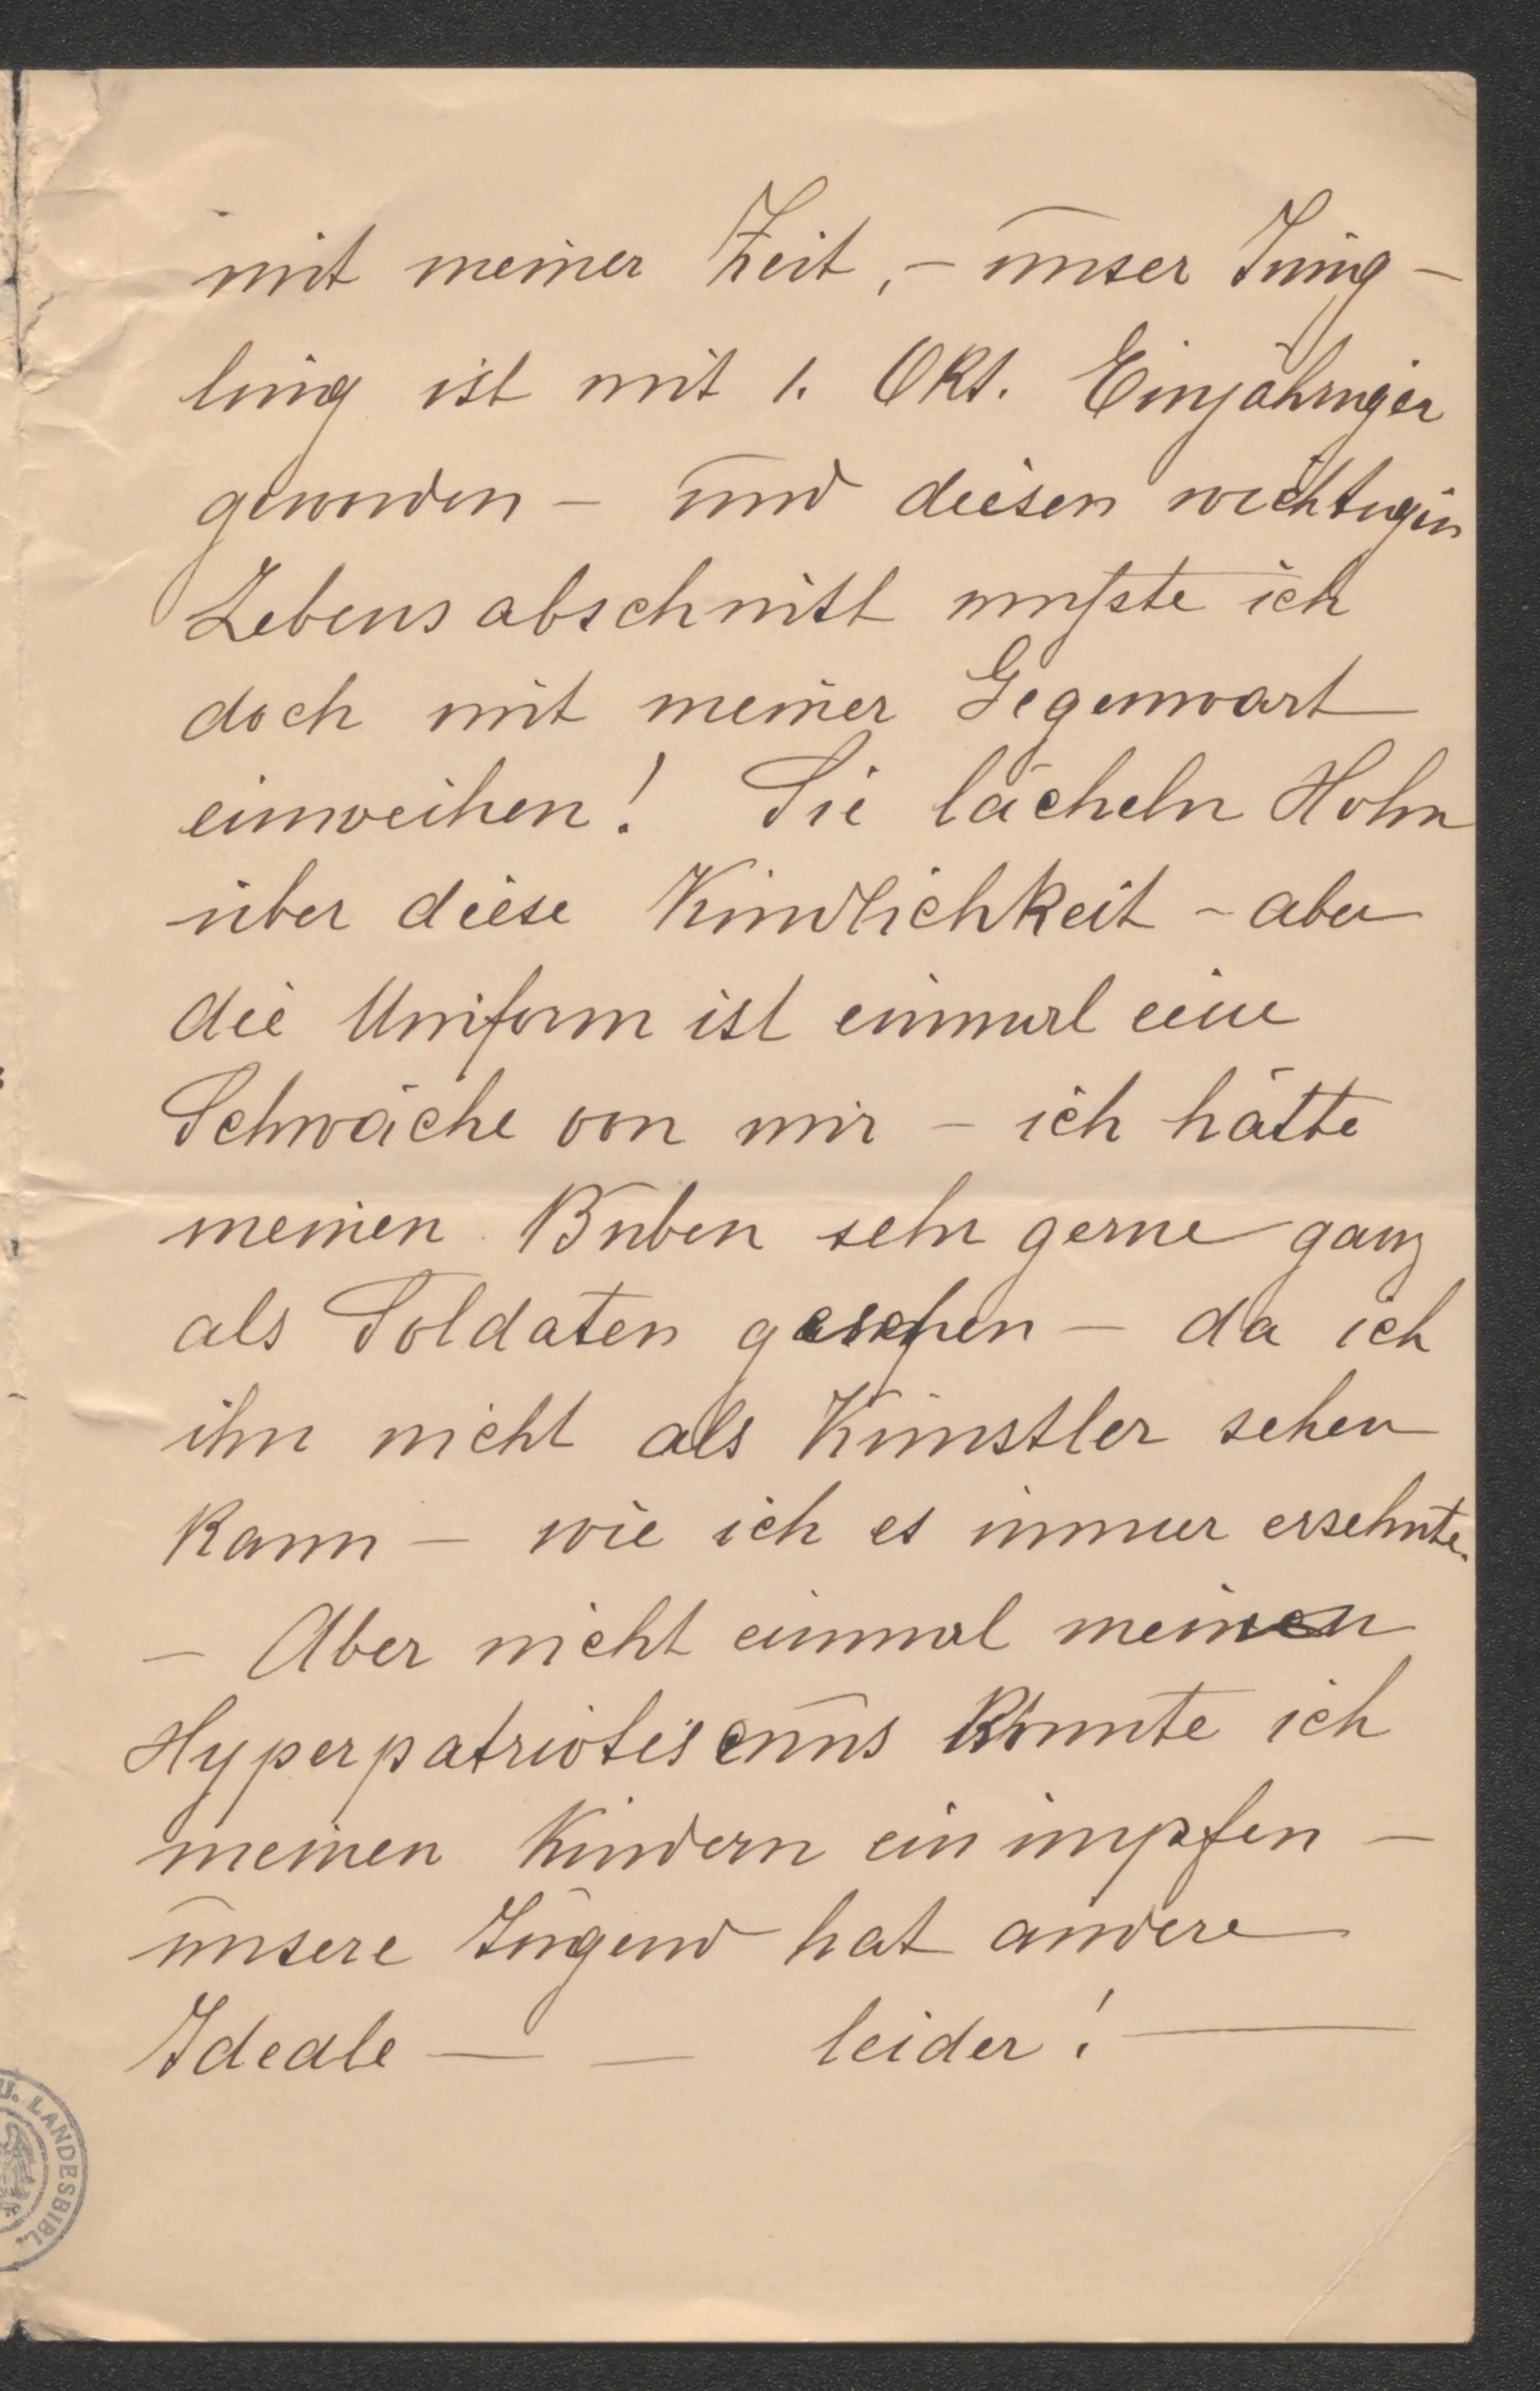 mit meiner Zeit, – unser Jüng-
ling ist mit 1. Okt. Einjähriger
geworden – und diesen wichtigen
Lebensabschnitt musste ich
doch mit meiner Gegenwart
einweihen! Sie lächeln Hohn
über diese Kindlichkeit – aber
die Uniform ist einmal eine
Schwäche von mir – ich hätte
meinen Buben sehr gerne ganz
als Soldaten gesehen – da ich
ihn nicht als Künstler sehen
kann – wie ich es immer ersehnte.
– Aber nicht einmal meinen
Hyperpatriotismus konnte ich
meinen Kindern einimpfen –
unsere Jugend hat andere
Ideale – – leider! –
U. LANDESBIBL.